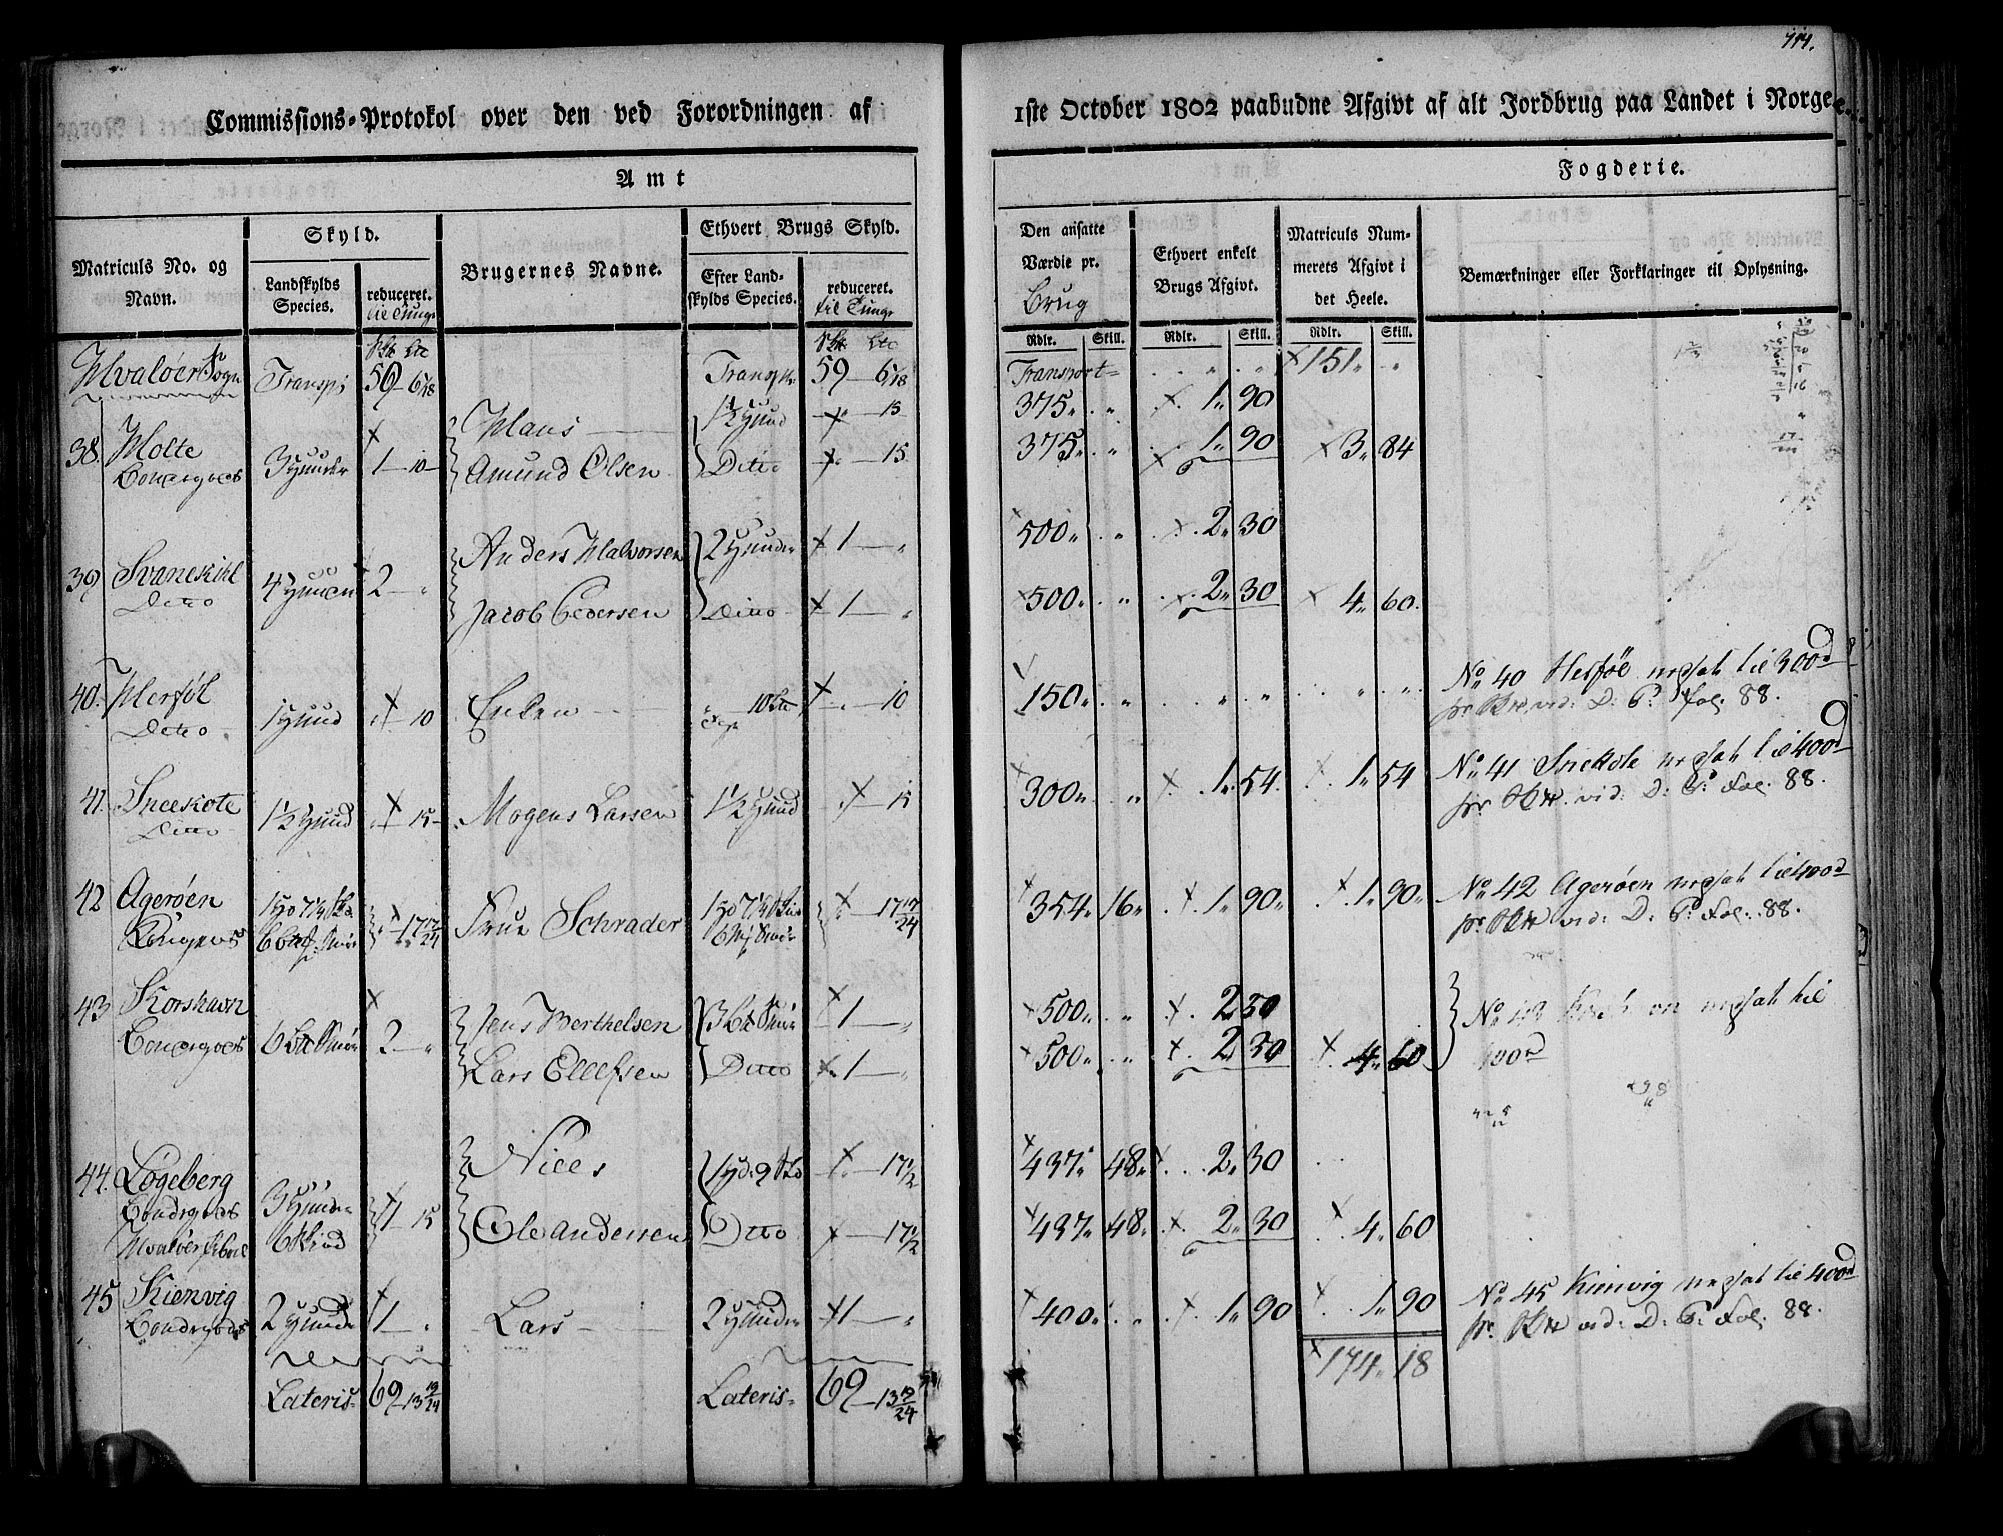 114.
Commissions-Protokol over den ved Forordningen af
1ste October 1802 paabudne Afgivt af alt Jordbrug paa Landet i Norge.
Amt
Fogderie.
Matriculs No. og Navn.
Skyld.
Landskylds Species.
reduceret. til Tunge
Brugernes Navne.
Ethvert Brugs Skyld.
Efter Landskylds Species.
reduceret. til Tunge
Den ansatte Værdie pr. Brug
Ethvert enkelt Brugs Afgivt.
Matriculs Nummerets Afgivt i det Heele.
Bemærkninger eller Forklaringer til Oplysning.
Rdlr. Skill. Rdlr. Skill. Rdlr. Skill.
Hvaløer Sogn Transp: 59 - 6 1/18 Transp: 59 - 6 1/18 Transport 151 „ „
Hans 1½ Hund „ 15 375 „ „ 1 „ 90
38. Holte 3 Hunder 1 - 10 Amund Olsen Ditto „ 15 375 „ „ 1 „ 90 3 „ 84
Bondergods
Anders Halvorsen 2 Hunder 1 - „ 500 „ „ 2 „ 30
39 Svanekihl 4 Hunder 2 - „ Jacob Pedersen Ditto 1 - „ 500 „ „ 2 „ 30 4 „ 60
Ditto
40. Herføl 1 Hund „ 10 Enken 10 „ 10 150 „ „ „ „ „ „ No 40 Herføl nedsat til 300 rd
Ditto pr. vid: D: P: Fol. 88.
41. Sneekote 1½ Hund „ 15 Mogens Larsen 1½ Hund „ 15 300 „ „ 1 „ 54 1 „ 54 No 41 nedsat til 400 rd
Ditto pr. vid: D: P: Fol. 88.
42 Agerøen „ 17 17/24 Frue Schrader „ 17 17/24 354 „ 16 „ 1 „ 90 „ 1 „ 90 „ No 42 Agerøen nedsat til 400 rd
Kongens pr. vid: D: P: Fol. 88.
43 Korshavn Jens Berthelsen 3 Smør 1 - „ 500 „ „ 2 30 No 43 nedsat til
Bondergods 6 Smør 2 - „ Lars Ellefsen Ditto 1 - „ 500 „ „ 2 30 4 „ 60 400 rd
Niels „ 17½ 437 „ 48 „ 2 „ 30
44. Løgeberg
Bondergods 3 Hunder 1 - 15 Ole Andersen Ditto „ 17½ 437 „ 48 „ 2 „ 30 4 „ 60
6 Skind
45 Kienvig 2 Hunder 1 - „ Lars 2 Hunder 1 - „ 400 „ „ 1 „ 90 1 „ 90 No 45 Kienvig nedsat til 400 rd
Bondergods pr. vid: D: P: Fol. 88.
Lateris 69 - 13 19/24 Lateris 69 - 13 19/24 174 „ 18